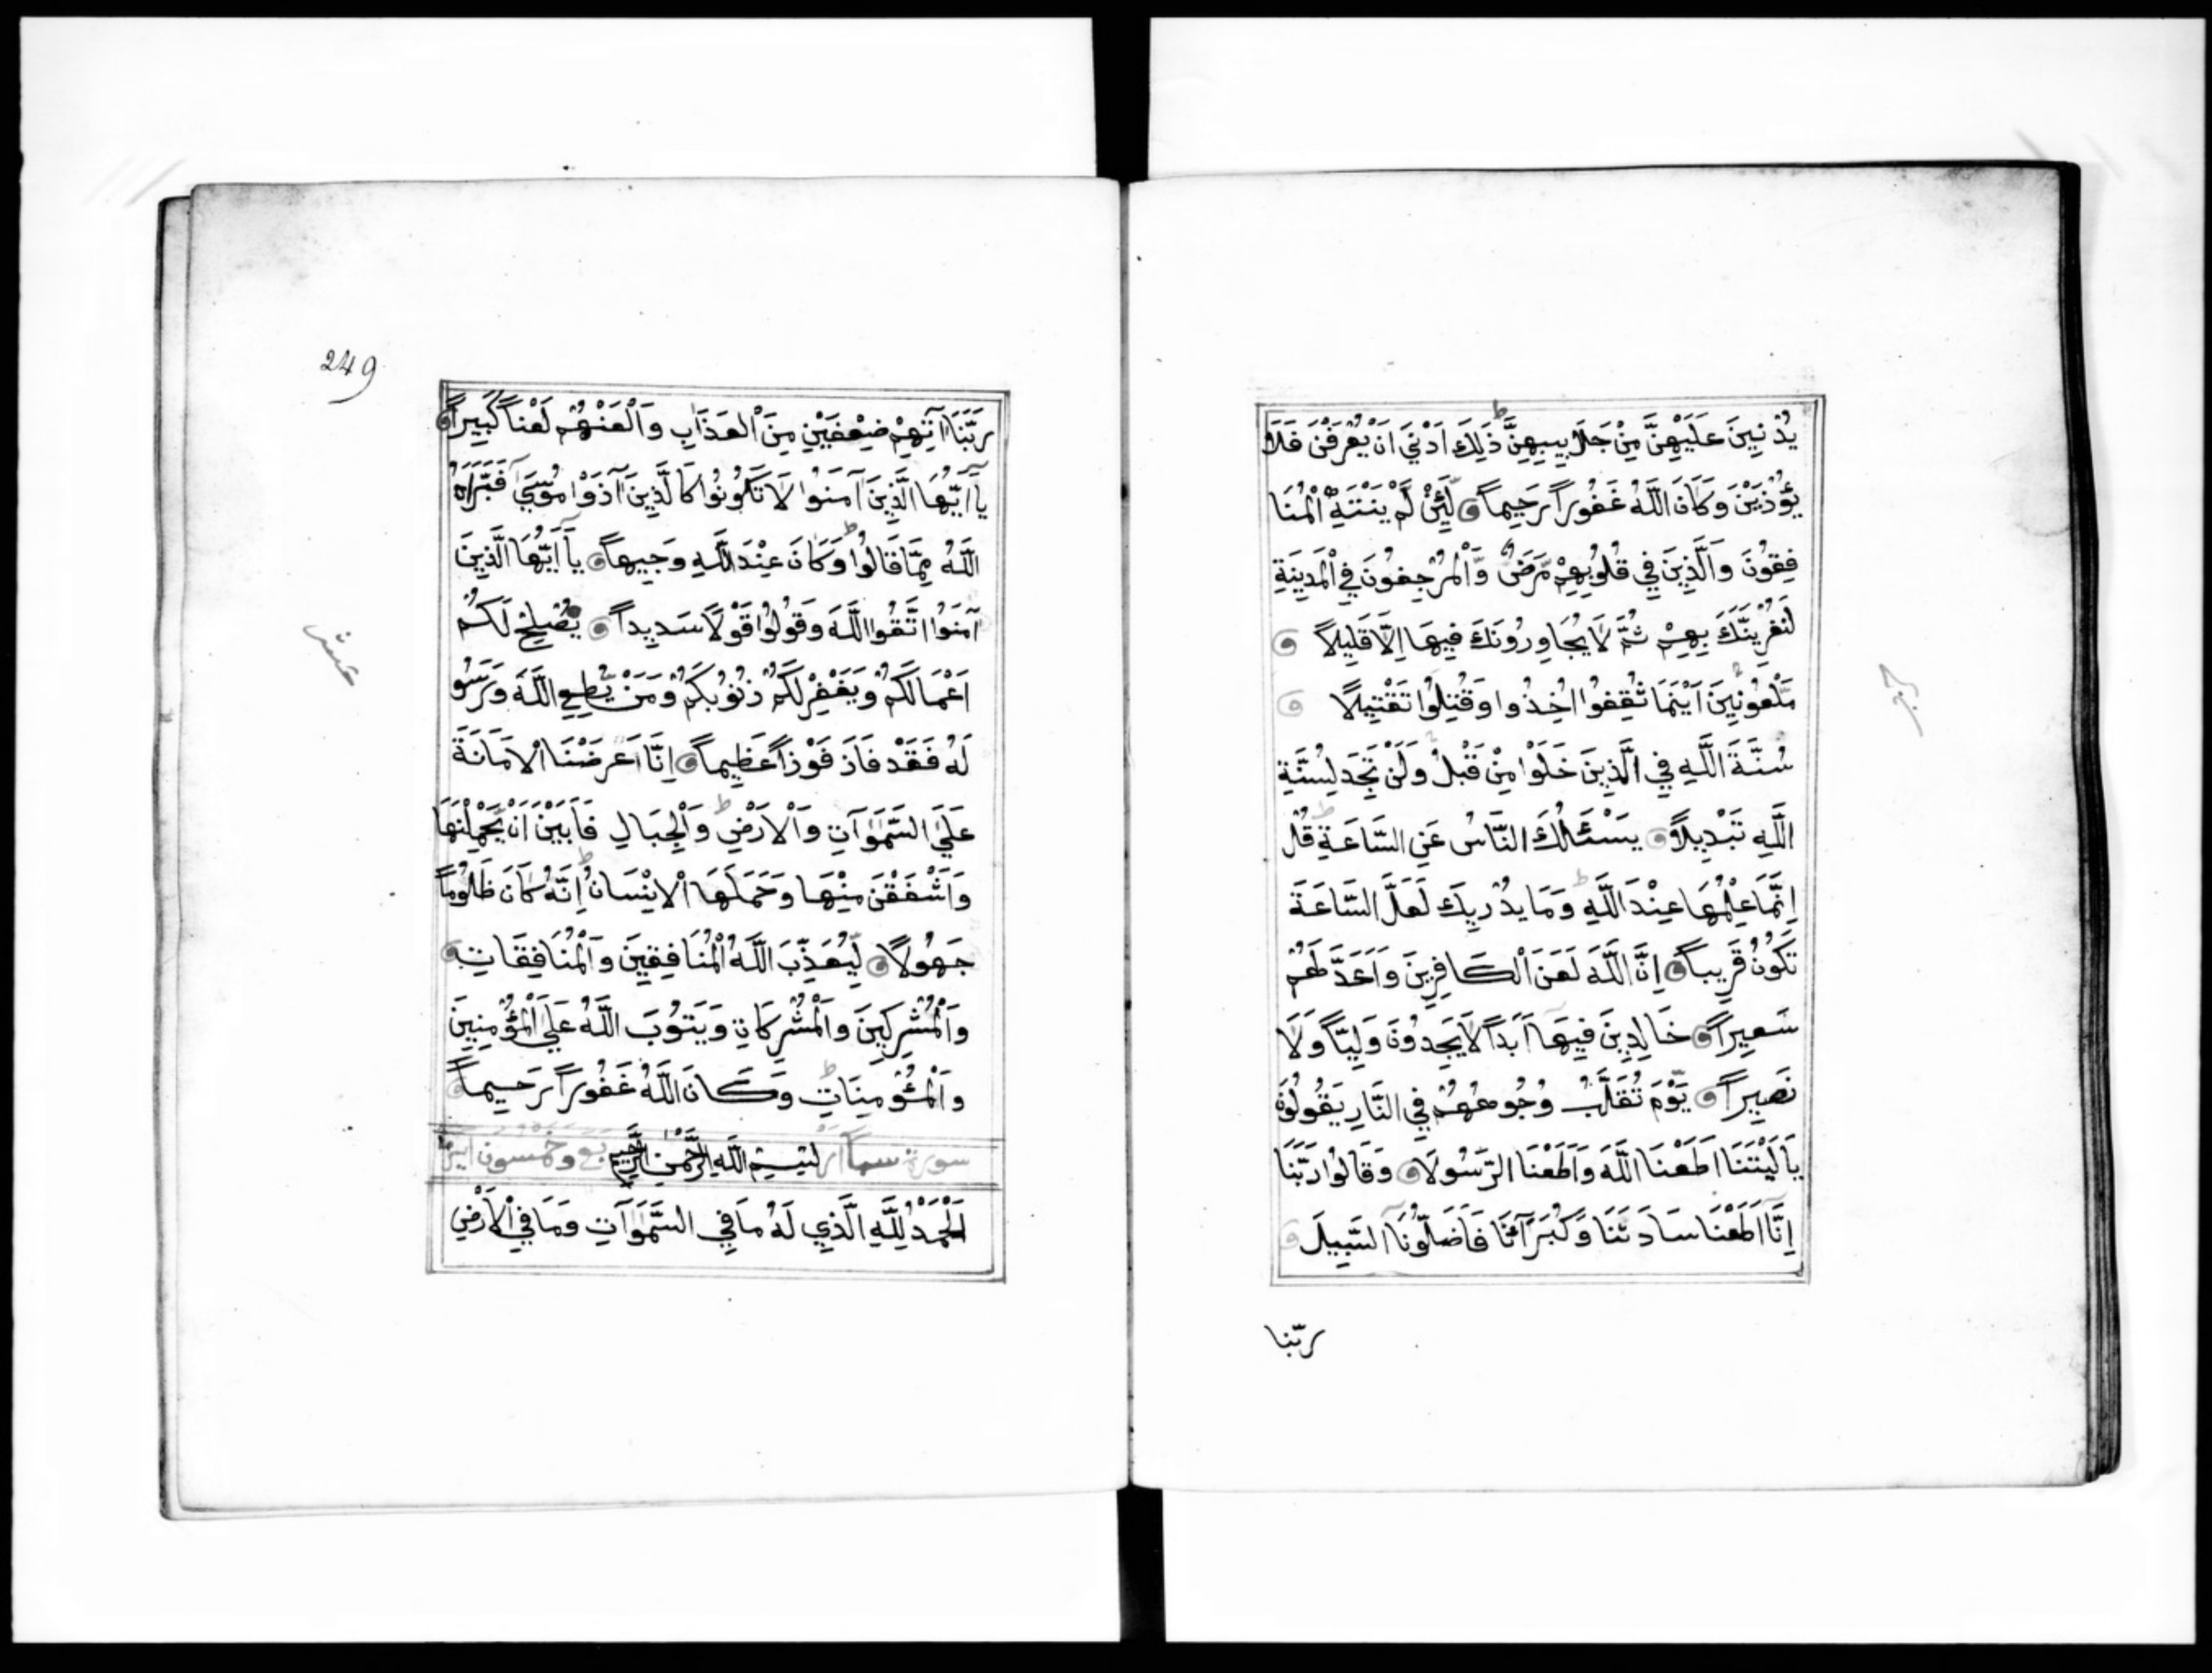 يُدْنِينَ عَلَيْهِنَّ مِنْ جَلَابِيبِهِنَّ ط ذَلِكَ اَدْنَي اَنْ يُعْرَفْنَ فَلَا
يُؤْذَيْنَ وَكَانَ اللَّهُ غَفُوراً رَحِيماً لَّئِنْ لَّمْ يَنْتَهِ اْلمُنَا
فِقُونَ وَالَّذِينَ فِي قُلُوبِهِمْ مَّرَضٌ وَّاْلمُرْجِفُونَ فِي اْلمَدِينَةِ
لَنُغْرِيَنَّكَ بِهِمْ ثُمَّ لَا يُجَاوِرُونَكَ فِيهَا اِلَّا قَلِيلاً
مَّلْعُونِينَ اَيْنَمَا ثُقِفُوا اُخِذُوا وَقُتِلُوا تَقْتِيلًا
سُنَّةَ اللَّهِ فِي الَّذِينَ خَلَوْا مِنْ قَبْلُ وَلَنْ تَجِدَ لِسُنَّةِ
اللَّهِ تَبْدِيلاً يَسْئَلُكَ النَّاسُ عَنِ السَّاعَةِ ط قُلْ
اِنَّمَا عِلْمُهَا عِنْدَ اللَّهِ ط وَمَا يُدْرِيكَ لَعَلَّ السَّاعَةَ
تَكُونُ قَرِيباً اِنَّ اللَّهَ لَعَنَ اْلكَافِرِينَ وَاَعَدَّ لَهُمْ
سَعِيراً خَالِدِينَ فِيهَا اَبَداً لَا يَجِدُونَ وَلِيّاً وَلَا
نَصِيراً يَوْمَ تُقَلَّبُ وُجُوهُهُمْ فِي النَّارِ يَقُولُونَ
يَا لَيْتَنَا اَطَعْنَا اللَّهَ وَاَطَعْنَا الرَّسُولَا وَقَالُوا رَبَّنَا
اِنَّا اَطَعْنَا سَادَتَنَا وَكُبَرَآئَنَا فَاَضَلُّونَا السَّبِيلَا
ربّنا
249
رَبَّنَا آتِهِمْ ضِعْفَيْنِ مِنَ اْلعَذَابِ وَاْلعَنْهُمْ لَعْناً كَبِيراً
يَآ اَيُّهَا الَّذِينَ آمَنُوا لَا تَكُونُوا كَالَّذِينَ آذَوْا مُوسَيٰ فَبَرَّاَهُ
اللَّهُ مِمَّا قَالُوا ط وَكَانَ عِنْدَ اللَّهِ وَجِيهاً يَآ اَيُّهَا الَّذِينَ
آمَنُوا اتَّقُوا اللَّهَ وَقُولُوا قَوْلاً سَدِيداً يُصْلِحْ لَكُمْ
اَعْمَالَكُمْ وَيَغْفِرْ لَكُمْ ذُنُوبَكُمْ وَمَنْ يُّطِعِ اللَّهَ وَرَسُو
لَهُ فَقَدْ فَازَ فَوْزاً عَظِيماً اِنَّا عَرَضْنَا اْلاَمَانَةَ
عَلَي السَّمٰوَاتِ وَاْلاَرْضِ ط وَاْلجِبَالِ فَاَبَيْنَ اَنْ يَّحْمِلْنَهَا
وَاَشْفَقْنَ مِنْهَا وَحَمَلَهَا اْلاِنْسَانُ ط اِنَّهُ كَانَ ظَلُوماً
جَهُولًا لِّيُعَذِّبَ اللَّهُ اْلمُنَافِقِينَ وَاْلمُنَافِقَاتِ
وَاْلمُشْرِكِينَ وَاْلمُشْرِكَاتِ وَيَتُوبَ اللَّهُ عَلَي اْلمُؤْمِنِينَ
وَاْلمُؤْمِنَاتِ ط وَكَانَ اللَّهُ غَفُوراً رَحِيماً
سورة سبأ بِسْمِ اللَّهِ الرَّحْمٰنِ الرَّحِيمِ وخمسون
اَلْحَمْدُ لِلَّهِ الَّذِي لَهُ مَا فِي السَّمٰوَاتِ وَمَا فِي اْلاَرْضِ